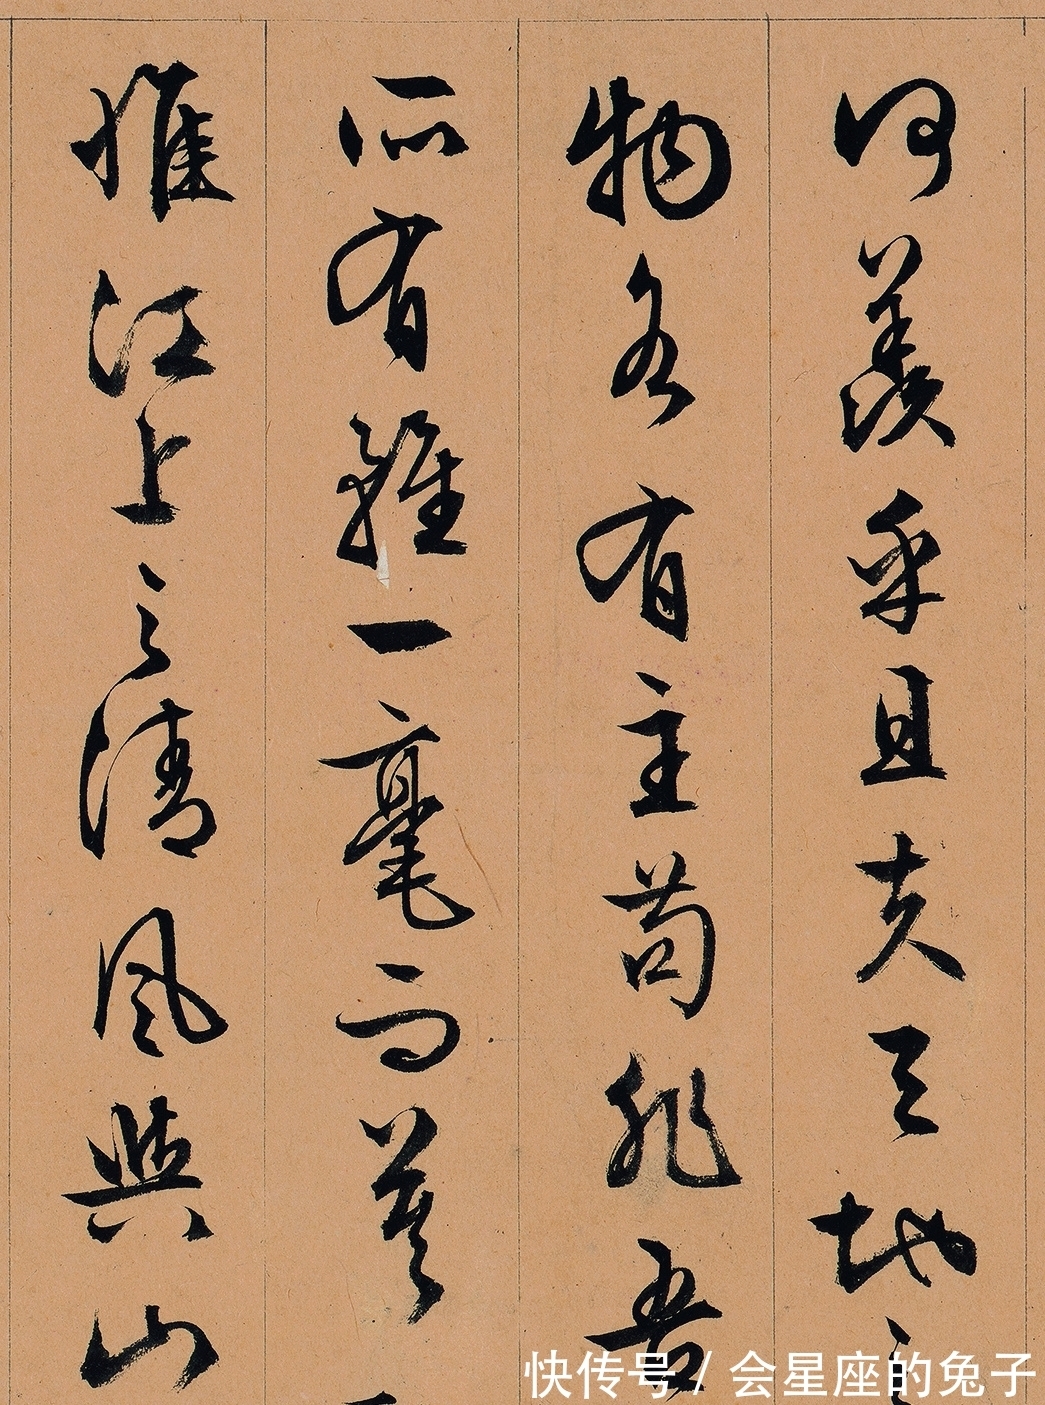 何羨乎且夫天地之
物各有主苟非吾
所有雖一毫而莫
惟江上之清風與山
快传号 / 会星座的兔子